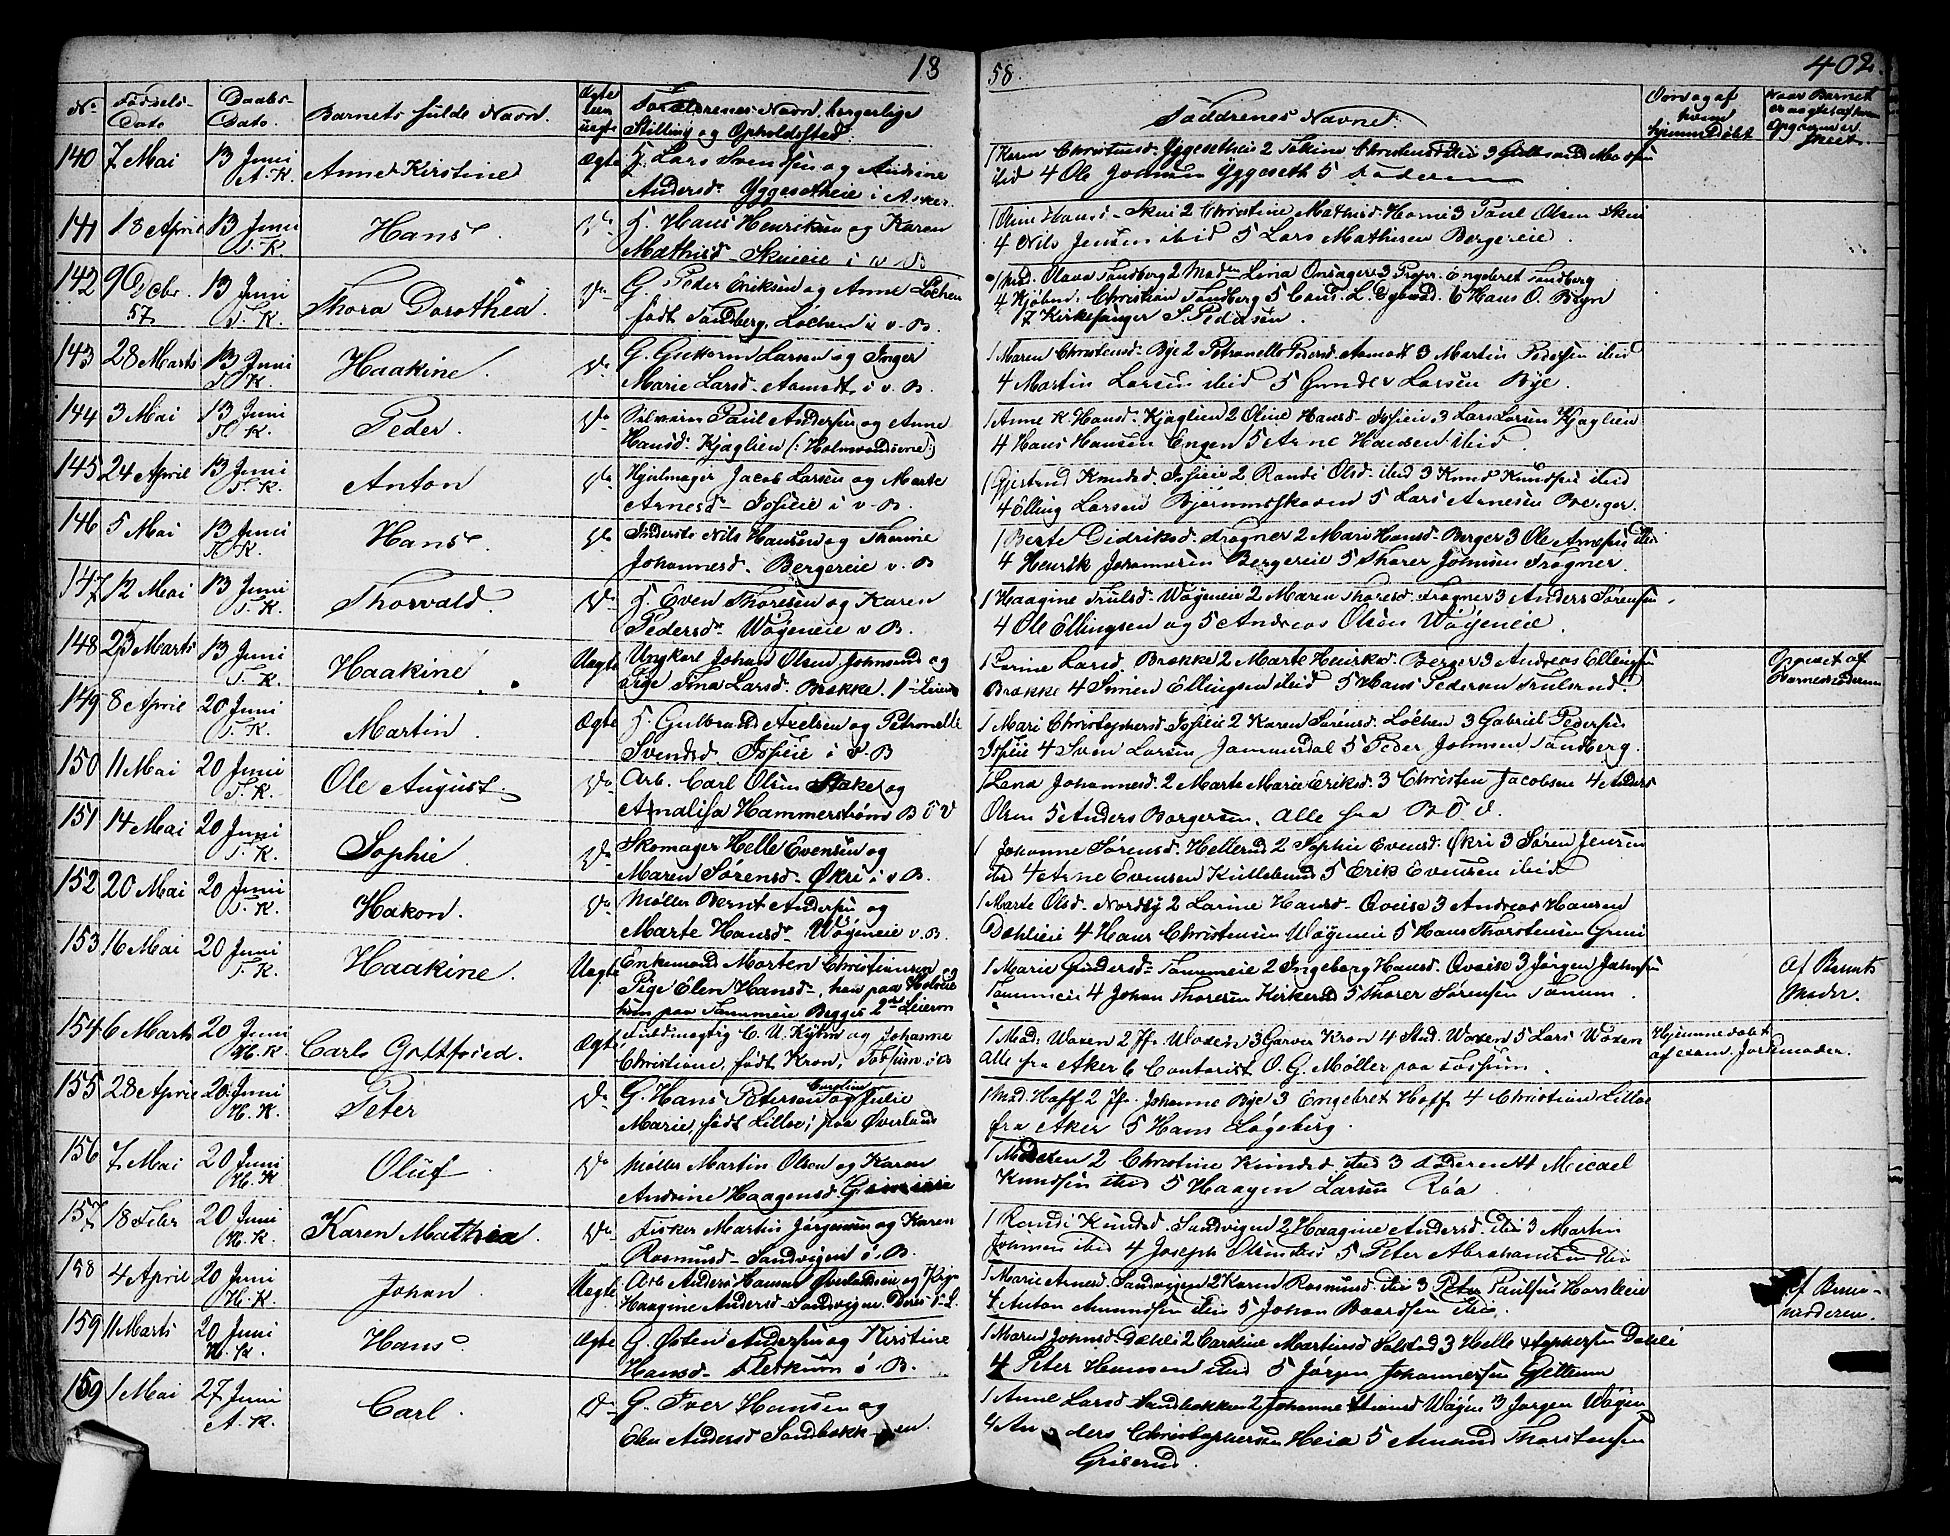 18
58
402
No
Fødsels-Dato
Daabs-Dato.
Barnets fulde Navn.
Ægte eller uægte
Forældrenes Navn, borgerlige
Stilling og Opholdssted.
Faddrenes Navne.
Om og af hvem hjemmedøbt
140 7 Mai 13 Juni A. K. Anne Kirstine Ægte G. Lars Svendsen og Andrine
Andersd. Yggesetheie i Asker.
1 Karen Christensd. Yggesetheie 2
ibid 4 Ole Johnsen Yggeseth 5 Faderen
141 18 April 13 Juni T. K. Hans Do G. Hans Henriksen og Karen
Mathisd. Skuieie i v. B
1 Oline Hansd. Skui 2 Christine Mathisd. Horni 3 Paul Olsen Skui
4 Nils Jensen ibid 5 Lars Mathisen Bergereie
142 9 Octbr. 57. 13 Juni T. K. Thora Dorothea. Do G. Peder Eriksen og Anne Løchen
født Sandberg, Løchen i v. B.
1 Mad. Olava Sandberg 2 Maden Lina Onsager 3 Propr. Engebret Sandberg
4 Kjøbm. Christian Sandberg 5 Cand. L. 6 Hans O. Bryn
7 Kirkesanger S. Pedersen.
143 28 Marts 13 Juni T. K. Haakine. Do G. Guttorm Larsen og Inger
Marie Larsd. Aamodt i v. B.
1 Maren Christensd. Bye 2 Petronelle Pedersd. Aamodt 3 Martin Pedersen ibid
4 Martin Larsen ibid 5 Gunder Larsen Bye.
144 3 Mai 13 Juni T. K. Peder. Do Selveier Paul Andersen og Anne
Hansd. Kjaglien
1 Anne K. Hansd. Kjaglien 2 Oline Hansd. Isieie 3 Lars Larsen Kjaglien
4 Hans Hansen Engen 5 Arne Hansen ibid
145 24 April 13 Juni T. K. Anton Do Hjulmager Jacob Larsen og Marte
Arnesd. Isieie i v. B.
1 Gjertrud Knudsd. Isieie 2 Randi Olsd. ibid 3 Knud Knudsen ibid
4 Elling Larsen Bjørumsskoven 5 Lars Arnesen Berger.
146 5 Mai 13 Juni T. K. Hans. Do Inderste Nils Hansen og Thonine
Johannesd. Bergereie v. B
1 Berte Didriksd. Frogner 2 Mari Hansd. Berger 3 Ole Arnesen ibid
4 Henrik Johannesen Bergereie 5 Thorer Johnsen Frogner.
147 12 Mai 13 Juni T. K. Thorvald. Do G. Even Thoresen og Karen
Pedersd. Wøyeneie v B.
1 Haagine Trulsd. Wøyeneie 2 Maren Thoresd. Frogner 3 Anders Sørensen
4 Ole Ellingsen og 5 Andreas Olsen Wøyeneie.
148 23 Marts 13 Juni T. K. Haakine Uægte Ungkarl Johan Olsen Johnsrud og
Pige Tina Larsd. Brække. 1ste Leierm
1 Larine Larsd. Brække 2 Marte Henriksd. Berger 3 Andreas Ellingsen
Brække 4 Simen Ellingsen ibid 5 Hans Pedersen Trulsrud.
Opgivet af Barnefaderen
149 8 April 20 Juni T. K. Martin. Ægte G. Gulbrand Axelsen og Petronelle
Svendsd. Isieie i V. B
1 Mari Christophersd. Isieie 2 Karen Sørensd. Løchen 3 Gabriel Pedersen
Isieie 4 Sven Larsen Jammerdal 5 Peder Johnsen Sandberg.
150 11 Mai 20 Juni T. K. Ole August. Do Arb. Carl Olsen Stake og
Annalisa Hammerstrøm B Ö V
1 Lena Johannesd. 2 Marte Marie Eriksd. 3 Christen Jacobsen 4 Anders
Olsen 5 Anders Borgersen. Alle fra B. Ö. V.
151 14 Mai 20 Juni T. K. Sophie. Do Skomager Helle Evensen og
Maren Sørensd. Økri i v. B.
1 Johanne Sørensd. Hellerud 2 Sophie Evensd. Økri 3 Søren Jensen
ibid 4 Arne Evensen Kullebund 5 Erik Evensen ibid
152 20 Mai 20 Juni T. K. Hakon. Do Møller Bernt Andersen og
Marte Hansd. Wøyeneie v. B.
1 Marte Olsd. Nordby 2 Larine Hansd. Qveise 3 Andreas Hansen
Dæhlieie 4 Hans Christensen Wøyeneie 5 Hans Thorstensen Grini
153 16 Mai 20 Juni T. K. Haakine. Uægte Enkemand Morten Christiansen og
Pige Elen Hansd., han paa
hun paa Tanumeie Begges 2det Leierm
1 Marie Gundersd. Tanumeie 2 Ingeborg Hansd. Qveise 3 Jørgen
Tanumeie 4 Johan Thoresen Kirkerud 5 Thorer Sørensen Tanum.
Af Barnets Moder.
154 6 Marts 20 Juni H. K. Carl Gottfried. Ægte Fuldmægtig C. U. og Johanne
Christiane, født Kron, Fossum i B
1 Mad. Woxen 2 Jfr. Woxen 3 Garver Kron 4 Stud. Woxen 5 Lars Woxen
Alle fra Aker 6 Contorist O. G. Møller paa Fossum.
Hjemmedøbt af exam. Jordemoder.
155 28 April 20 Juni H. K. Peter Do G. Hans Petersen og Caroline Julie
Marie, født Lilloe, paa Øverland
1 Mad. Hoff 2 Jfr. Johanne Bye 3 Engebret Hoff 4 Christian Lilloe
fra Aker 5 Hans Løgeberg.
156 7 Mai 20 Juni H. K Oluf Do Møller Martin Olsen og Karen
Andrine Haagensd. Grinieie
1 Moderen 2 Christine Knudsd. ibid 3 Faderen 4 Micael
Knudsen ibid 5 Haagen Larsen Røa
157 18 Febr 20 Juni H. K. Karen Mathea. Do Fisker Martin Jørgensen og Karen
Rasmusd. Sandvigen i B.
1 Randi Knudsd. Sandvigen 2 Haagine Andersd. ibid 3 Martin
Johnsen ibid 4 Joseph Olsen ibid 5 Peter Abrahamsen ibid
158 4 April 20 Juni H. K. Johan. Uægte Arb. Anders Hansen Øverlandseie og
Haagine Andersd. Sandvigen.
1 Marie Arnesd. Sandvigen 2 Karen Rasmusd. ibid 3 Peter Paulsen Horsleeie
4 Anton Amundsen ibid 5 Johan Baardsen ibid.
Af Barnemoderen.
159 11 Marts 20 Juni H. K. Hans Ægte G. Østen Andersen og Kirstine
Hansd. Fleskum i B.
1 Maren Johnsd. Dæhli 2 Caroline Martinsd. Solstad 3 Helle Dæhli
4 Peter Hansen ibid 5 Jørgen Johannessen Gjettum
159 1 Mai 27 Juni A. K. Carl. Do G. Iver Hansen og
Elen Andersd Sandbakken.
1 Anne Larsd Sandbakken 2 Johanne Wøyen 3 Jørgen Wøyen
4 Anders Christophersen Heia 5 Amund Thorstensen
Griserud.